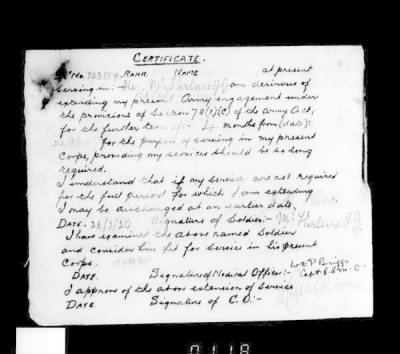 CERTIFICATE.
No. 703559 RANK NAME at present
serving in: McFarlane J. G. am desirous of
extending my present Army engagement under
the provisions of Section 78(1)(c) of the Army Act,
for the further term of:- 4 months from (date):
for the purpose of serving in my present
Corps, providing my services should be so long
required.
I understand that if my service are not required
for the full period for which I am extending
I may be discharged at an earlier date.
DATE. 28/3/20 Signature of Soldier:- McFarlane J G
I have examined the above named Soldier
and consider him fit for Service in his present
Corps.
DATE. Signature of Medical Officer:- W E P Briggs
Capt R.A.M.C.
I approve of the above extension of Service
DATE Signature of C.O:-
0118